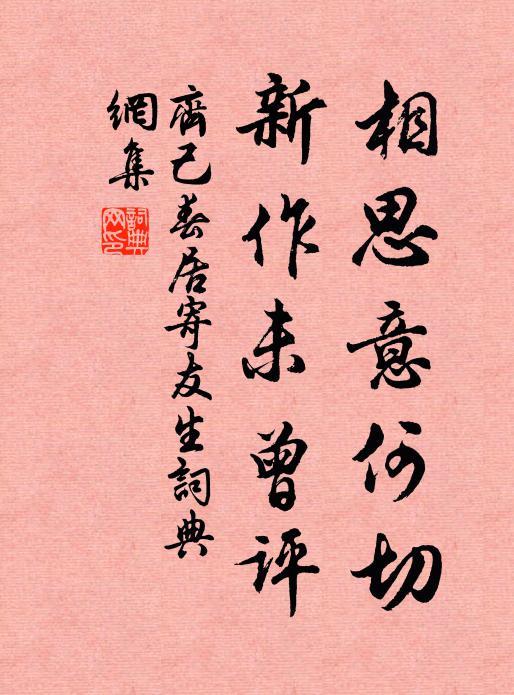 相思意何切
新作未曾評
齊己春居寄友生詞典
網集
詞典网印